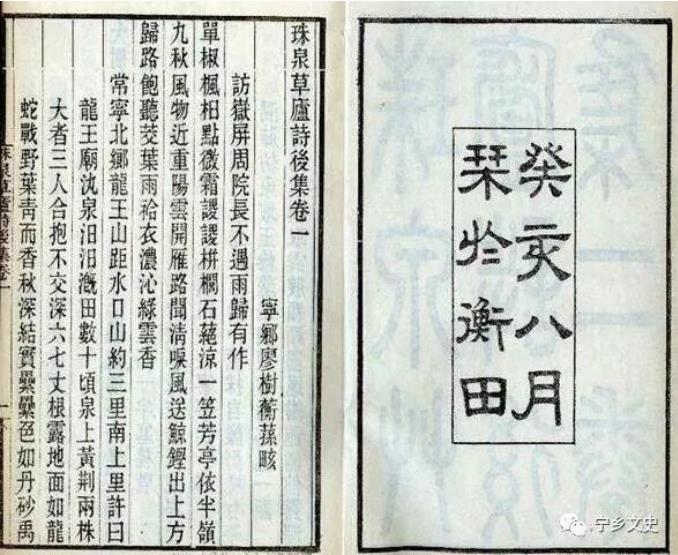 癸亥八月
栞於衡田
珠泉草廬詩後集卷一
寧鄉廖樹蘅蓀畡
訪嶽屏周院長不遇雨歸有作
單椒楓桕點微霜謖謖栟櫚石蕝涼一笠芳亭依半嶺
九秋風物近重陽雲開雁路聞清唳風送鯨鏗出上方
歸路飽聽茭葉雨袷衣濃沁綠雲香
常寧北鄉龍王山距水口山約三里南上里許曰
龍王廟氿泉汨汨溉田數十頃泉上黃荆兩株
大者三人合抱不交深六七丈根露地面如龍
蛇戰野葉青而香秋深結實纍纍色如丹砂禹
珠泉草廬詩後集卷一
宁乡文史